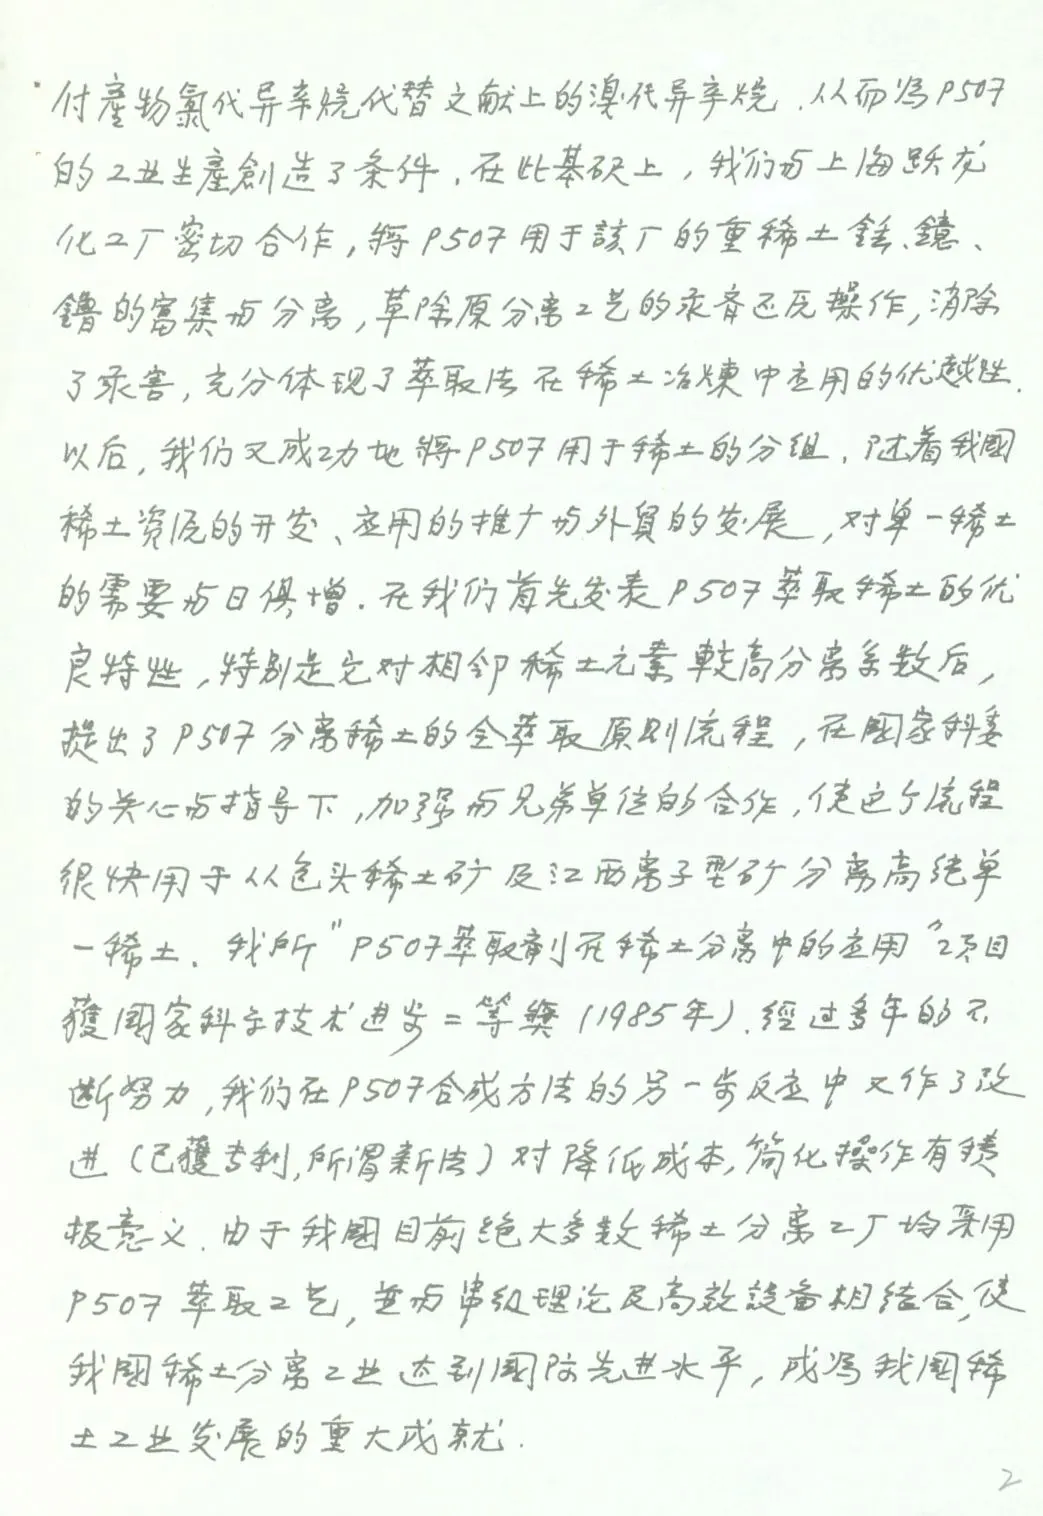 付產物氯代异辛烷代替文献上的溴代异辛烷.从而為P507
的工业生產創造了条件.在此基础上,我们与上海跃龙
化工厂密切合作,将P507用于該厂的重稀土銩、鐿、
鑥的富集与分离,革除原分离工艺的汞齐还原操作,消除
了汞害,充分体现了萃取法在稀土冶煉中应用的优越性.
以后,我们又成功地将P507用于稀土的分组.随着我國
稀土资源的开发、应用的推广与外貿的发展,对单一稀土
的需要与日俱增.在我们首先发表P507萃取稀土的优
良特性,特别是它对相邻稀土元素較高分离系数后,
提出了P507分离稀土的全萃取原则流程,在國家科委
的关心与指导下,加强与兄弟单位的合作,使这个流程
很快用于从包头稀土矿及江西离子型矿分离高纯单
一稀土.我所"P507萃取剂在稀土分离中的应用"项目
獲國家科学技术进步二等獎(1985年).經过多年的不
断努力,我们在P507合成方法的另一步反应中又作了改
进(已獲专利,所谓新法)对降低成本,简化操作有積
极意义.由于我國目前绝大多数稀土分离工厂均采用
P507萃取工艺,並与串级理论及高效設备相结合,使
我國稀土分离工业达到國际先进水平,成為我國稀
土工业发展的重大成就.
2